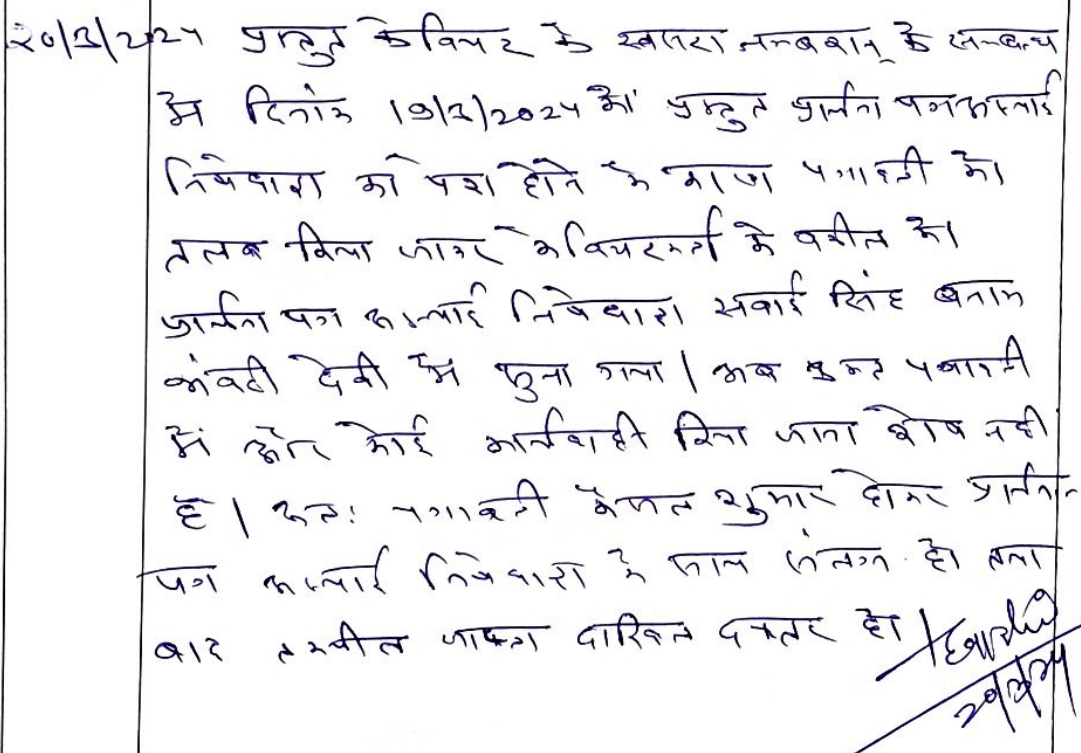 20/3/2024 प्रस्तुत केवियर के खसरा नम्बरान् के सम्बन्ध
में दिनांक 19/3/2024 को प्रस्तुत प्रार्थना पत्र अस्थाई
निषेधाज्ञा को पेश होने के कारण पत्रावली को
तलब किया जाकर केवियरकर्ता के वकील को
प्रार्थना पत्र अस्थाई निषेधाज्ञा सवाई सिंह बनाम
देवी में सुना गया | अब पत्रावली
में और कोई कार्यवाही किया जाना शेष नही
है | अतः पत्रावली फैसल शुमार होकर प्रार्थना-
पत्र अस्थाई निषेधाज्ञा के साथ संलग्न हो तथा
बाद तकमील जाब्ता दाखिल दफ्तर हो